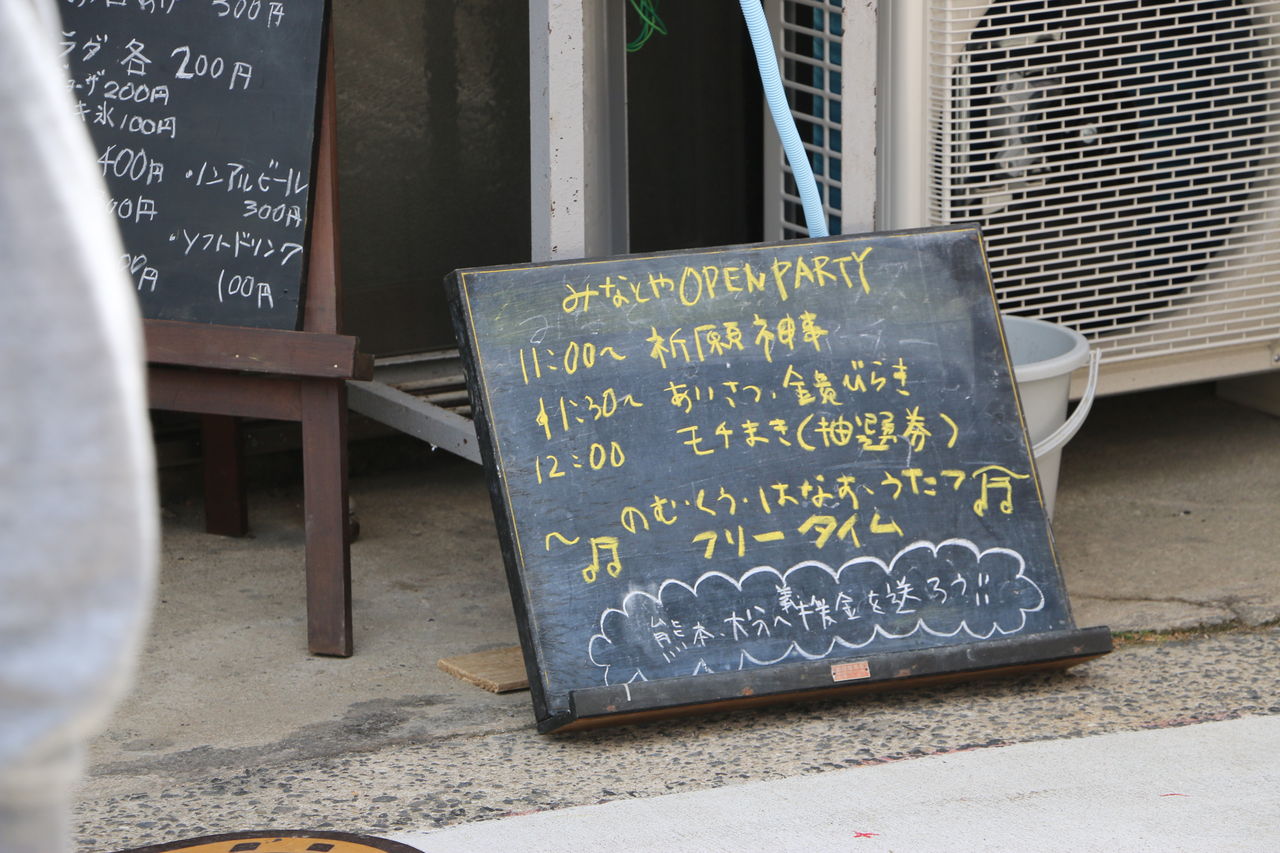 300円
ラダ 各 200円
ーザ200円
キ氷100円
400円
・ノンアルビール
00円
300円
・ソフトドリンク
円
100円
みなとや OPEN PARTY
11:00〜 祈願神事
11:30〜 あいさつ、鏡びらき
12:00 モチまき(抽選券)
〜のむ・くう・はなす、うたう
フリータイム
熊本、大分へ義援金を送ろう!!